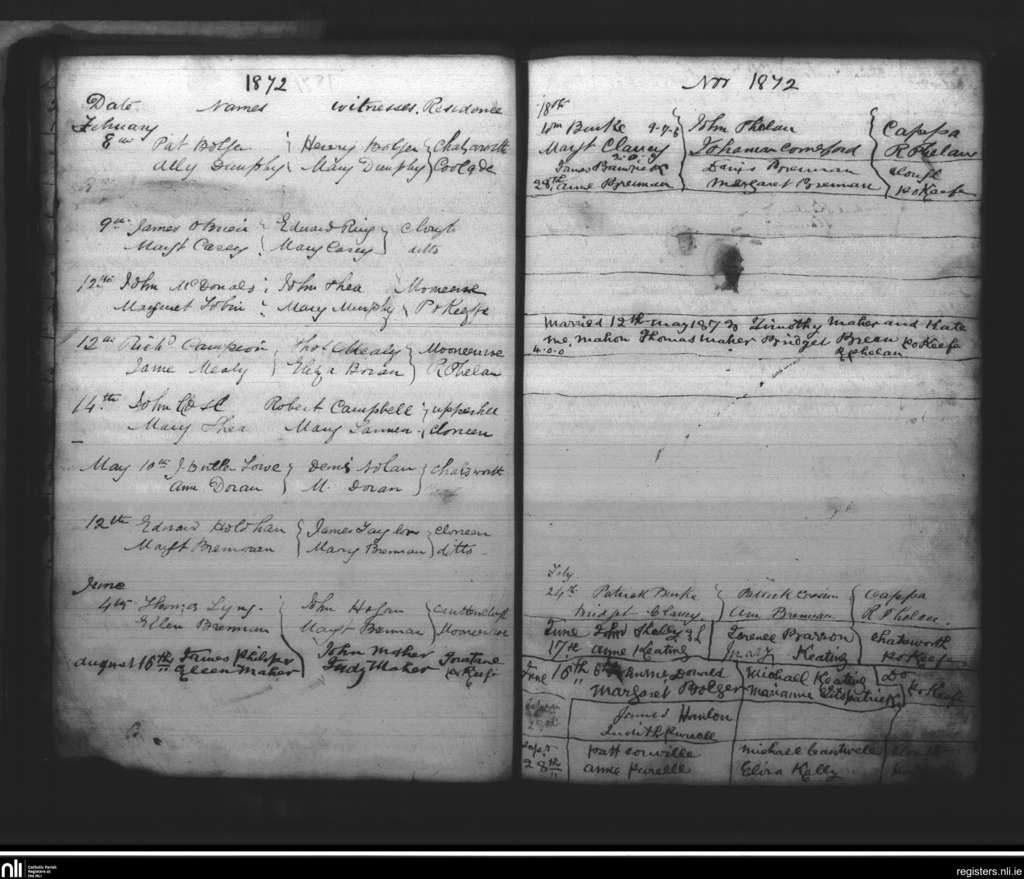 1872
Date Names Witnesses. Residence
February
8th Pat Bolger Henry Bolger Chatsworth
Ally Dunphy Mary Dunphy Coolade
9th James O Brien Edward Ring Clough
Margt Casey Mary Casey ditto
12th John McDonald John Shea Moneenroe
Margaret Tobin Mary Murphy P O Keeffe
12th Richd Campion, Thos Mealy Mooneenroe
Jane Mealy Eliza Boran R Phelan
14th John Cost Robert Campbell upperhill
Mary Shea Mary Lannen cloneen
May 10th J. Butler Lowe Denis Nolan chatsworth
Ann Doran M. Doran
12th Edward Holohan James Taylor cloneen
Margt Brennan Mary Brennan ditto
June
4th Thomas Lyng John Hogan
Ellen Brennan Margt Brennan Moneenroe
August 16th James Phillips John Maher
Eileen Maher Judy Maher Po Keefe
Nov 1872
18th
Wm Burke 9-7-6 John Phelan Cappa
Margt Clancy Johanna Comerford R Phelan
2.0.0
James Denis Brennan Clough
28th Anne Brennan Margaret Brennan Po Keefe
Married 12th May 1873 Timothy Maher and Kate
Mc Mahon Thomas Maher Bridget Breen Po Keefe
4-0-0 R Phelan
July
24th Patrick Burke Patrick Cappa
Bridgt Clancy Ann Brennan R Phelan.
June John Skelly Terence Chatsworth
17th Anne Keating Mary Keating Po Keefe
June 16th Donald Michael Keating Do
Margaret Bolger Marianne Fitzpatrick Po Keefe
James Hanlon
Judith Purcell
Sept Patt Michael Cantwell
28th Anne Purcell Eliza Kelly
nli
Catholic Parish
Registers at
the NLI
registers.nli.ie